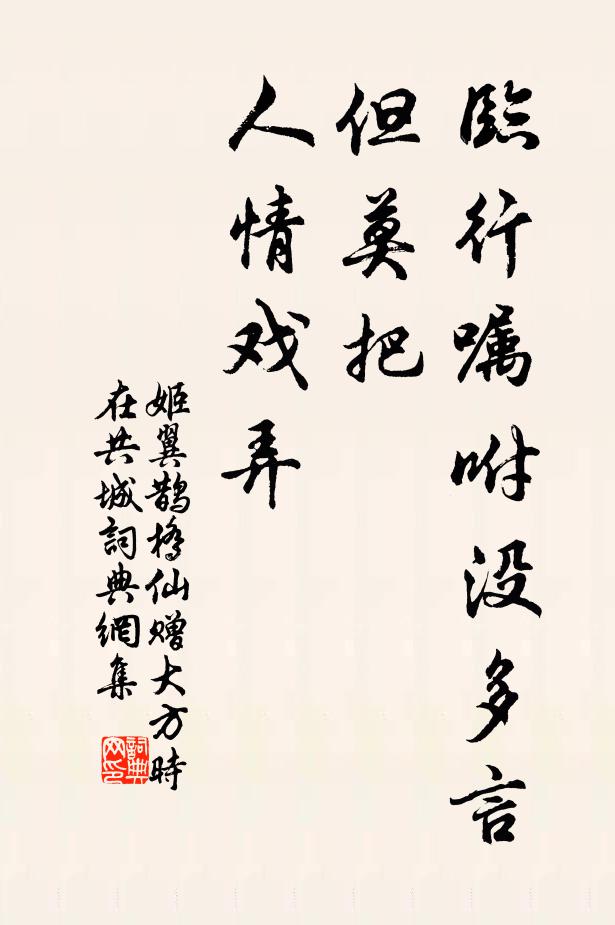 臨行嘱咐没多言
但莫把
人情戏弄
姬翼鹊橋仙赠大方時
在共城詞典網集
詞典网印